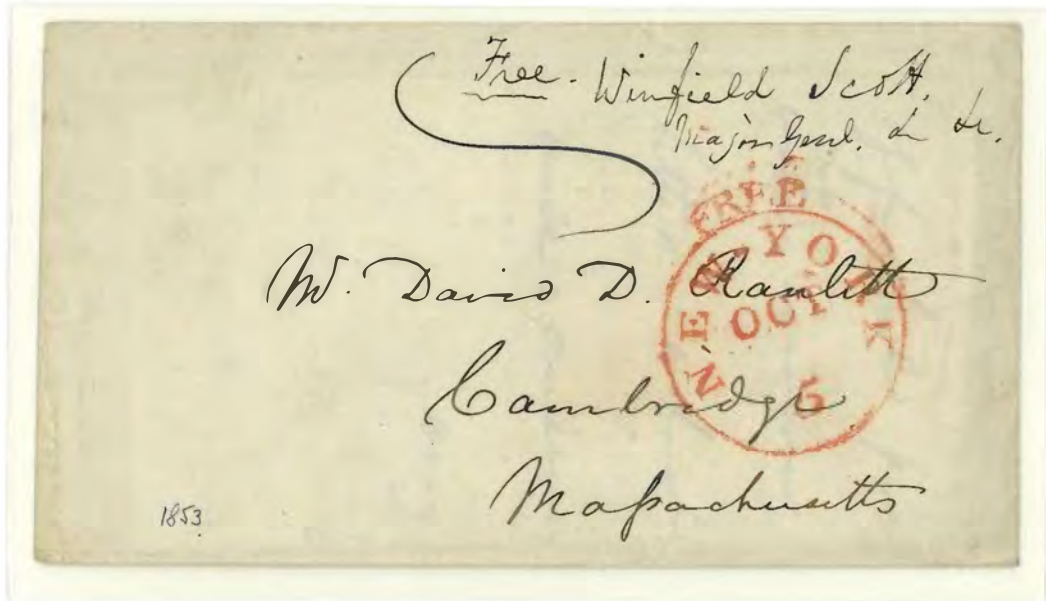 Free. Winfield Scott.
Major Genl.
FREE
NEW YORK
OCT
5
Mr. David D. Ranlett
Cambridge
Maſsachusetts
1853